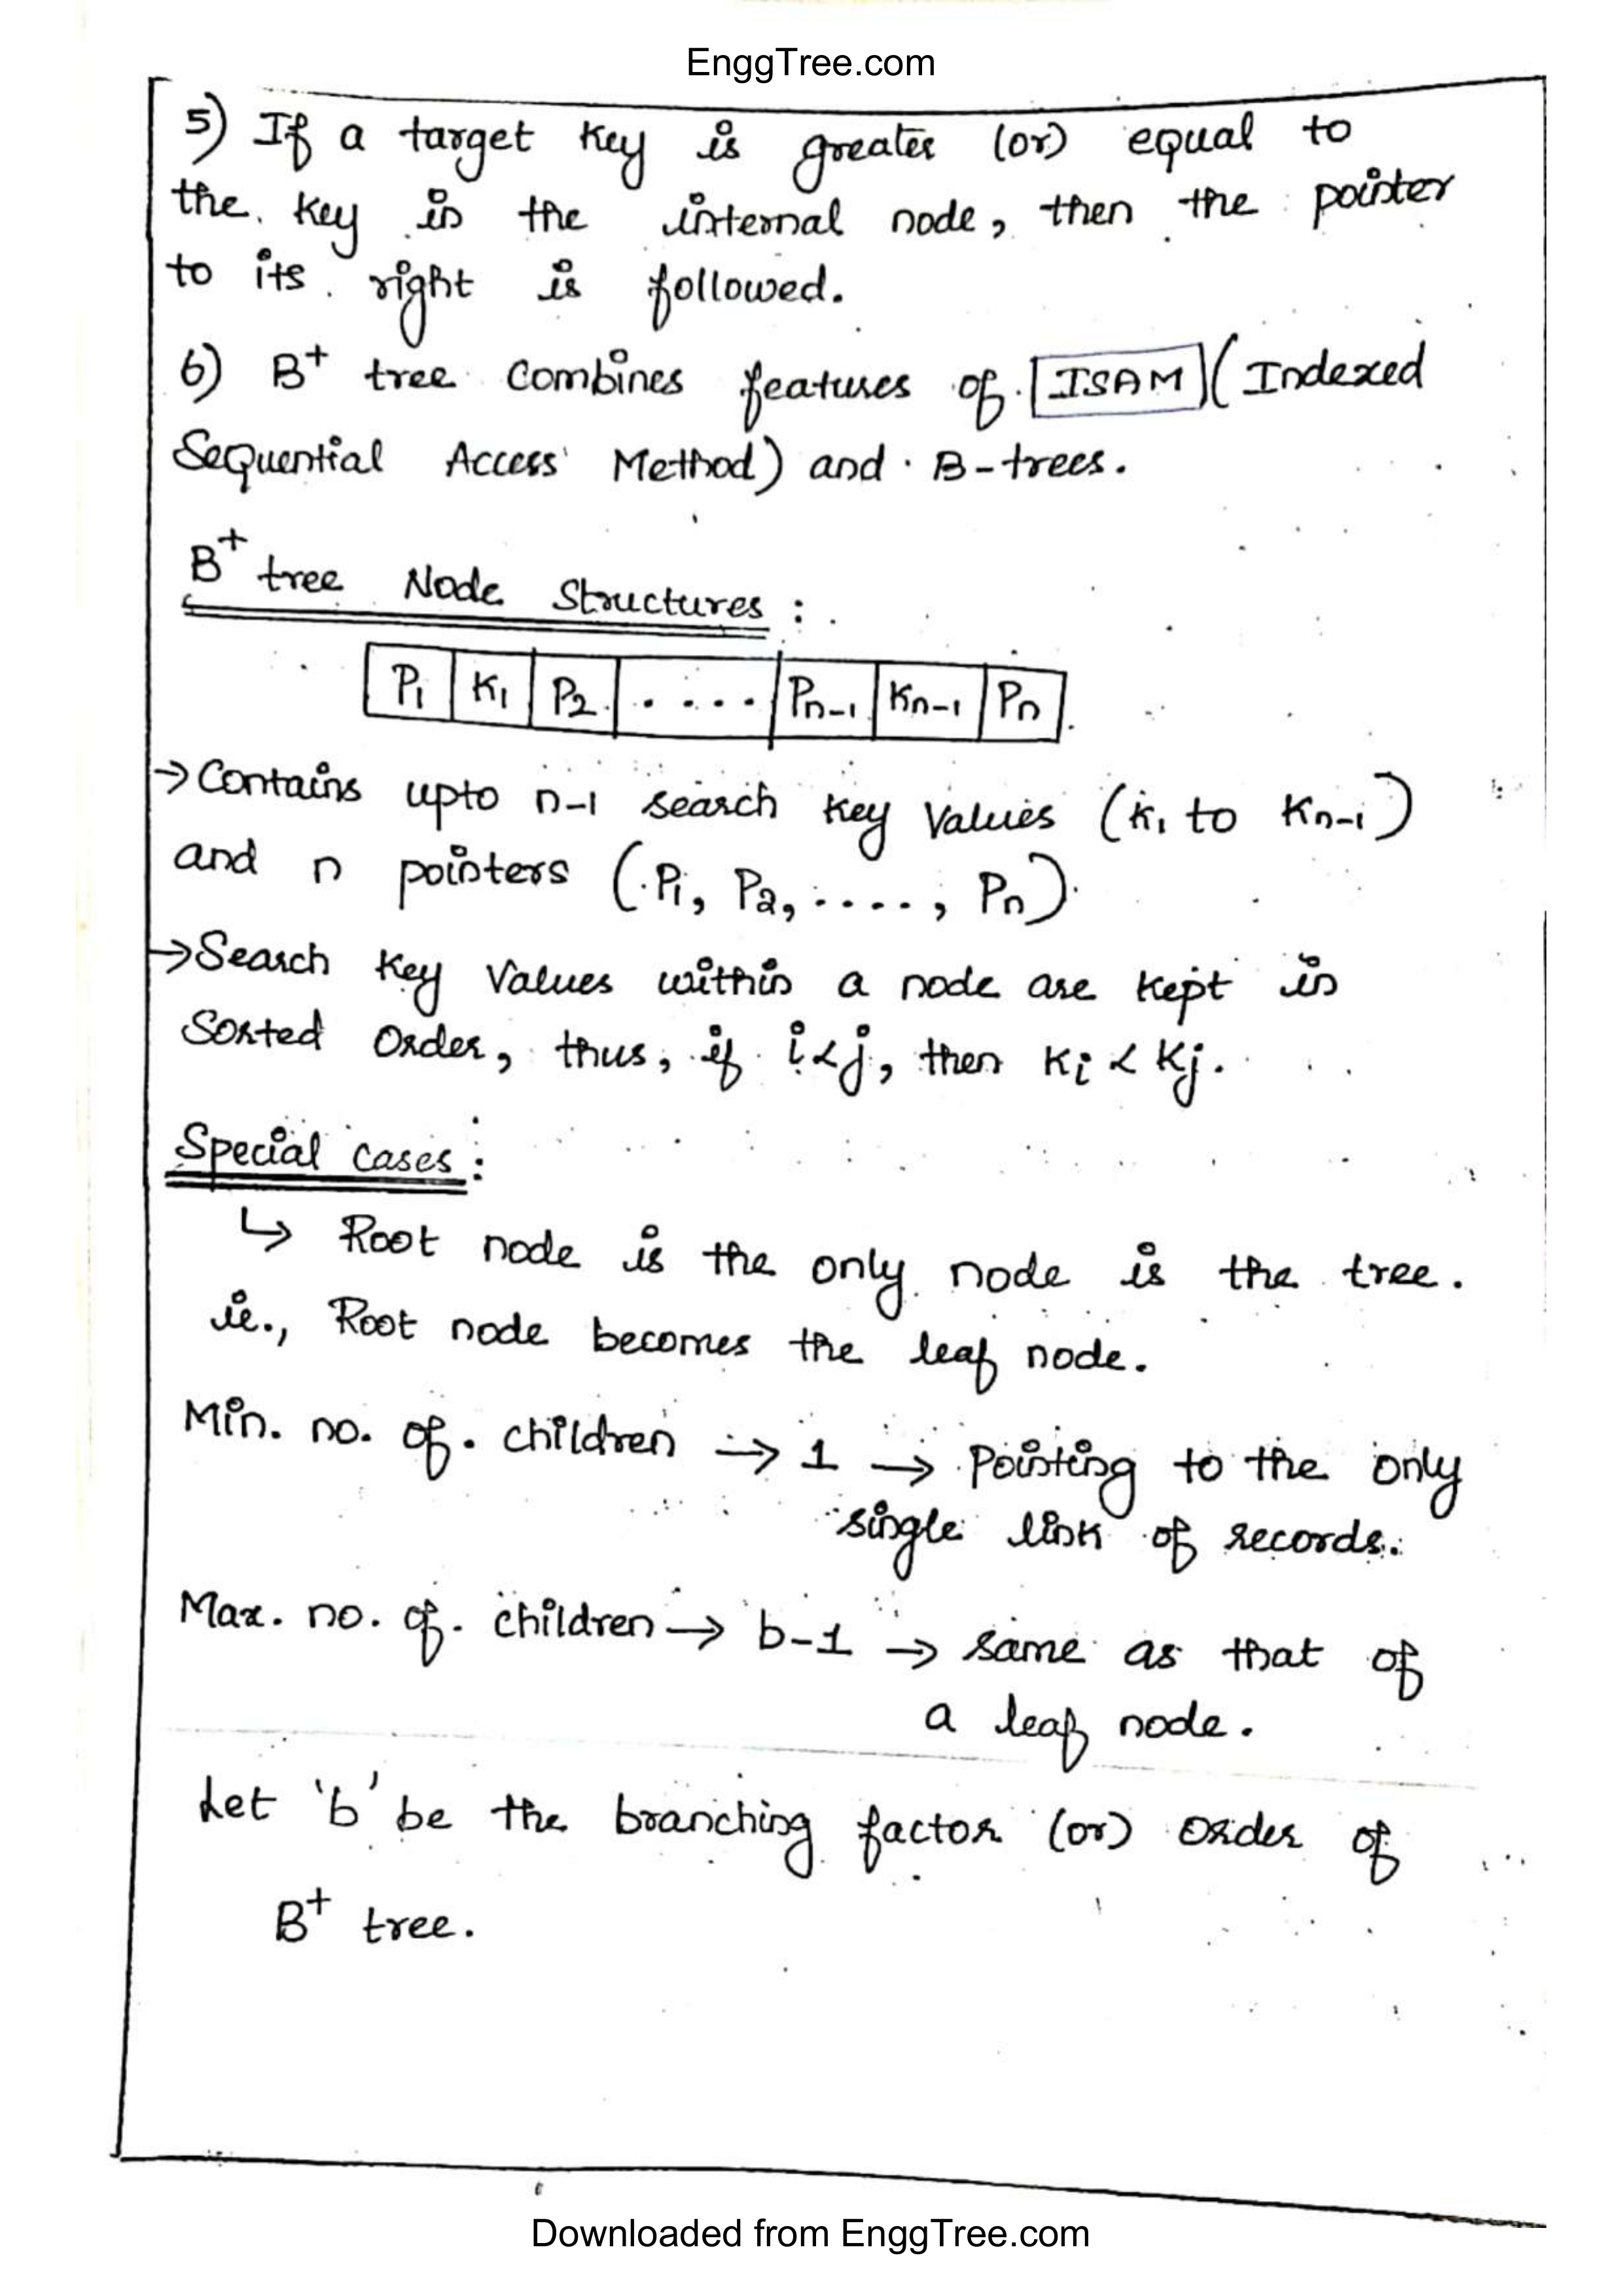 EnggTree.com
5) If a target key is greater (or) equal to
the key in the internal node, then the pointer
to its right is followed.
6) B+ tree combines features of ISAM (Indexed
Sequential Access Method) and B-trees.
B+ tree Node Structures :
P1 K1 P2 ..... Pn-1 Kn-1 Pn
→ Contains upto n-1 search key values (K1 to Kn-1)
and n pointers (P1, P2, ....., Pn)
→ Search key values within a node are kept in
Sorted Order, thus, if i<j, then Ki < Kj.
Special cases :
↳ Root node is the only node is the tree.
ie., Root node becomes the leaf node.
Min. no. of. children → 1 → Pointing to the only
single link of records.
Max. no. of. children → b-1 → same as that of
a leaf node.
Let 'b' be the branching factor (or) order of
B+ tree.
Downloaded from EnggTree.com